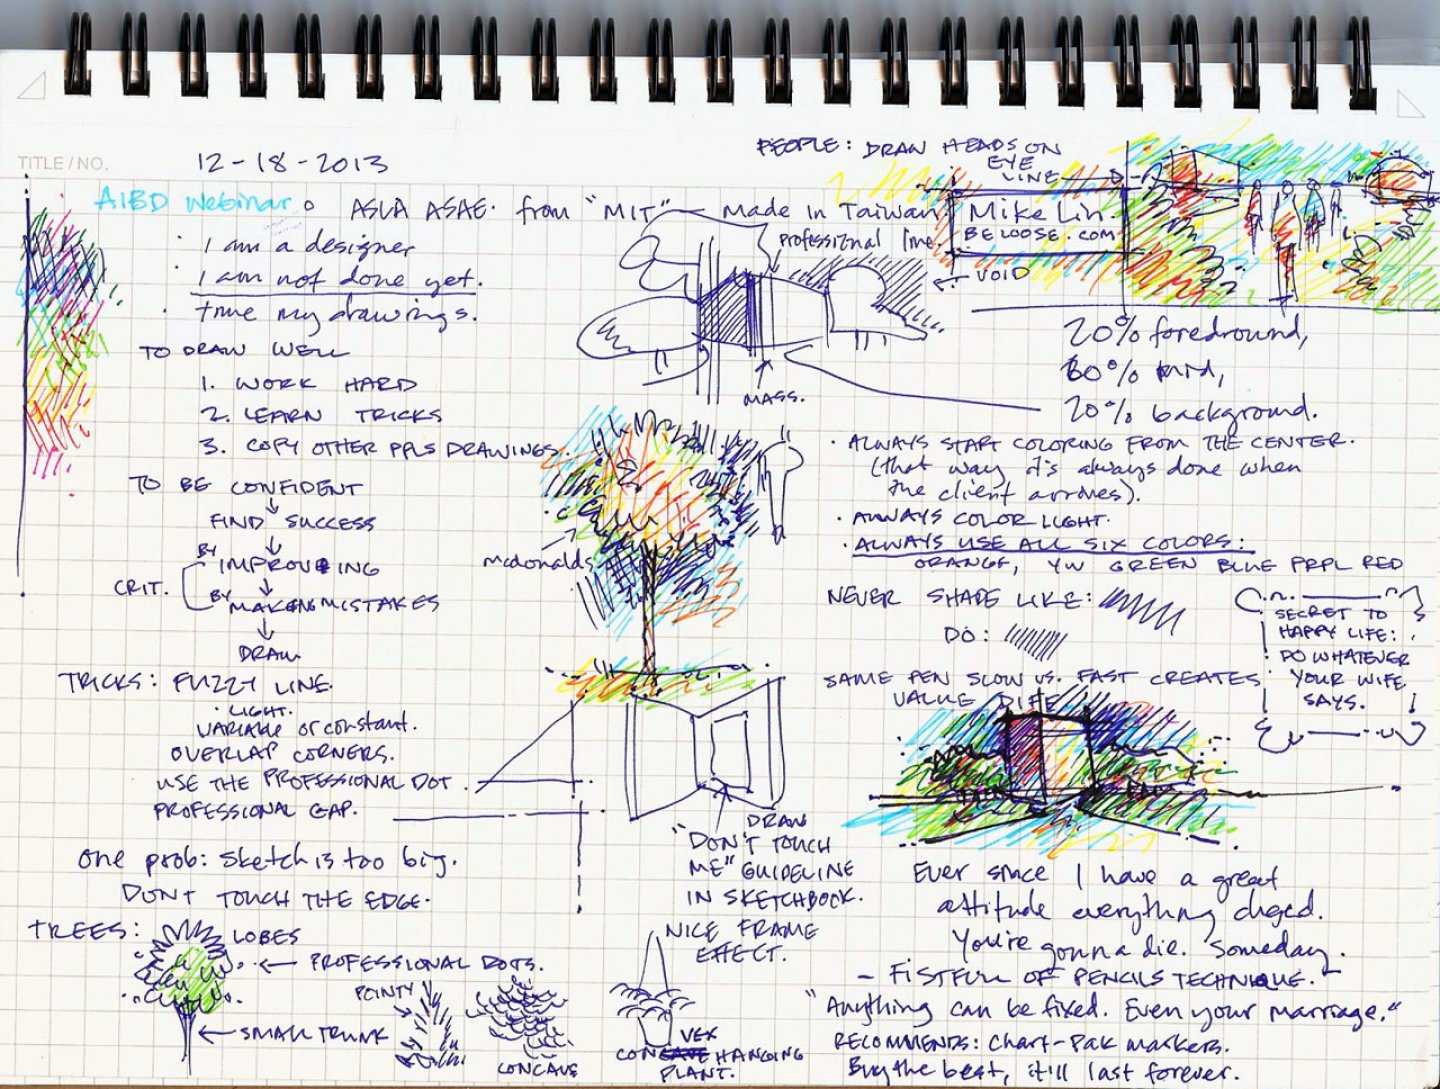 TITLE / NO.
12-18-2013
AIBD Webinar o ASLA ASAE. from "MIT" — Made in Taiwan Mike Lin.
BELOOSE.COM
I am a designer
I am not done yet.
time my drawings.
TO DRAW WELL
1. WORK HARD
2. LEARN TRICKS
3. COPY OTHER PPLS DRAWINGS.
TO BE CONFIDENT
FIND SUCCESS
BY IMPROVING
CRIT.
BY MAKING MISTAKES
DRAW
TRICKS: FUZZY LINE.
· LIGHT.
VARIABLE or constant.
OVERLAP CORNERS.
USE THE PROFESSIONAL DOT.
PROFESSIONAL GAP.
One prob: Sketch is too big.
DON'T TOUCH THE EDGE.
TREES:
LOBES
PROFESSIONAL DOTS.
POINTY
SMALL TRUNK
CONCAVE
VEX
CONCAVE HANGING
PLANT.
professional line.
VOID
MASS.
mcdonalds
DRAW
"DON'T TOUCH
ME" GUIDELINE
IN SKETCHBOOK.
NICE FRAME
EFFECT.
PEOPLE: DRAW HEADS ON
EYE
LINE
20% foredround,
60% mid,
20% background.
· ALWAYS START COLORING FROM THE CENTER.
(that way it's always done when
the client arrives).
· ALWAYS COLOR LIGHT.
· ALWAYS USE ALL SIX COLORS:
ORANGE, YW GREEN BLUE PRPL RED
NEVER SHADE LIKE:
DO:
SAME PEN SLOW VS. FAST CREATES
VALUE DIFF.
SECRET TO
HAPPY LIFE:
DO WHATEVER
YOUR WIFE
SAYS.
Ever since I have a great
attitude everything chged.
You're gonna die. Someday.
- FISTFULL OF PENCILS TECHNIQUE.
"Anything can be fixed. Even your marriage."
RECOMMENDS: Chart-Pak markers.
Buy the best, it'll last forever.